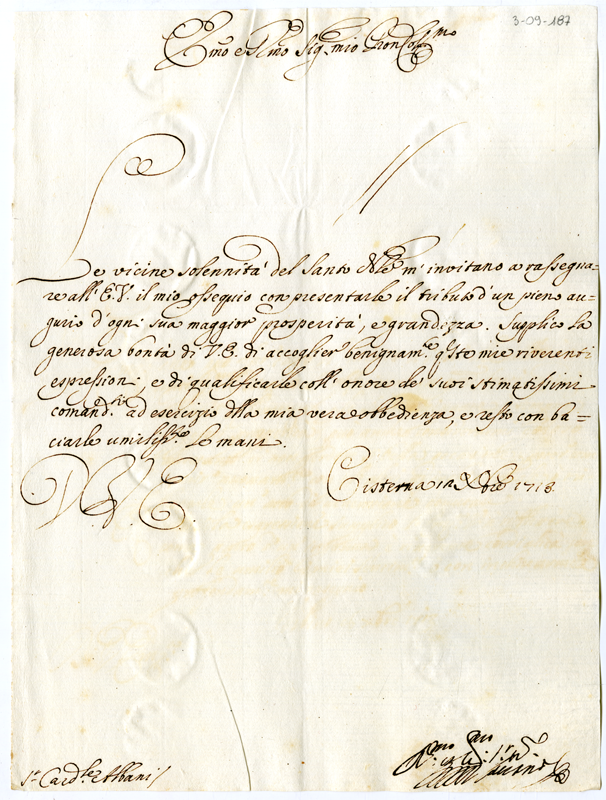 3-09-187
Em̃o e Rm̃o Sig.r mio Pron Col.mo
Le vicine solennità del Santo Nle m'invitano a rassegna=
re all'E.V. il mio ossequio con presentarle il tributo d'un pieno au=
gurio d'ogni sua maggior prosperità, e grandezza. Supplico la
generosa bontà di V.E. di accoglier benignam.te q.ste mie riverenti
espressioni, e di qualificarle coll'onore de' suoi stimatissimi
comand.ti ad esercizio dlla mia vera obbedienza, e resto con ba=
ciarle umiliss.te le mani.
D. V. E.
Cisterna 12 Xbre 1713
S.r Card.le Albani